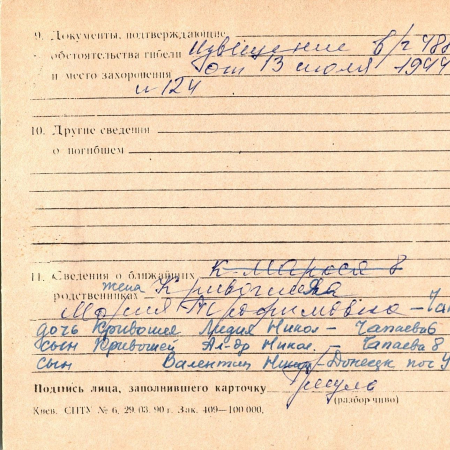 9. Документы, подтверждающие
обстоятельства гибели Извещение в/ч 488
и место захоронения от 13 июля 1944
н 124
10. Другие сведения
о погибшем
11. Сведения о ближайших К-Маруся 8
жена Кривошея
родственниках
Мария Трофимовна – Чап
дочь Кривошея Лидия Никол – Чапаева 6
сын Кривошей Ал-др Никол. – Чапаева 8
сын Валентин Донецк поч
Подпись лица, заполнившего карточку
(разборчиво)
Киев. СПТУ № 6, 29.03.90 г. Зак. 409—100 000.